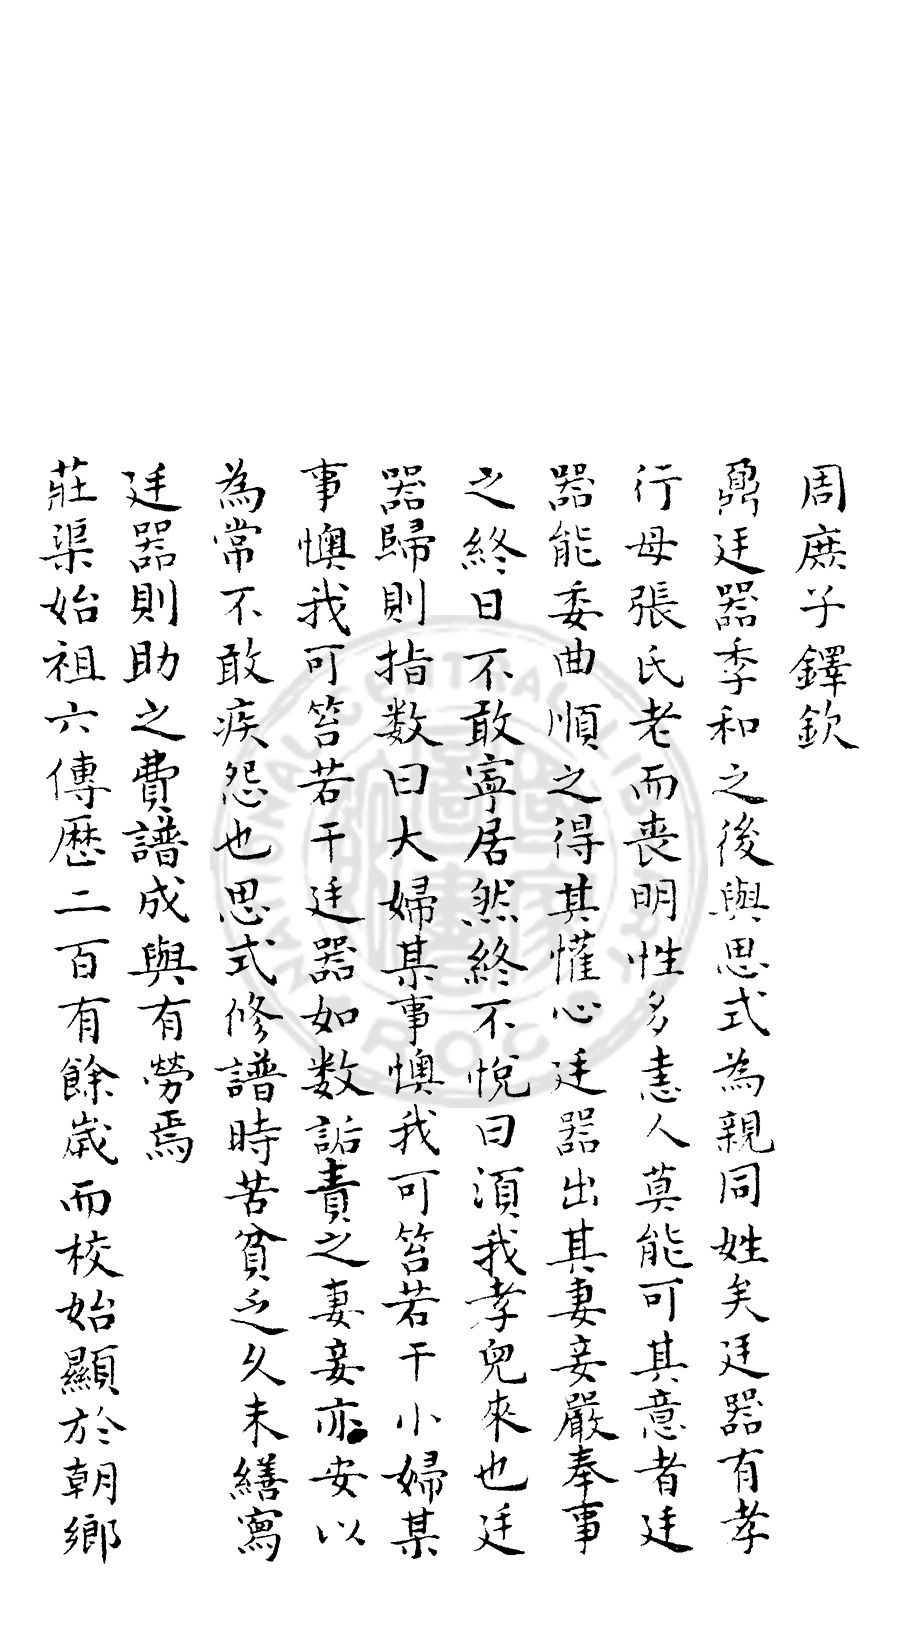 周庶子鐸欽
鼐廷器季和之後與思式為親同姓矣廷器有孝
行母張氏老而喪明性多恚人莫能可其意者廷
器能委曲順之得其懽心廷器出其妻妾嚴奉事
之終日不敢寧居然終不悅曰湏我孝兒來也廷
器歸則指数曰大婦某事懊我可笞若干小婦某
事懊我可笞若干廷器如数詬責之妻妾亦安以
為常不敢疾怨也思式修譜時苦貧乏久未繕寫
廷器則助之費譜成與有勞焉
莊渠始祖六傳歷二百有餘歲而校始顯於朝鄉
NATIONAL CENTRAL LIBRARY ROC